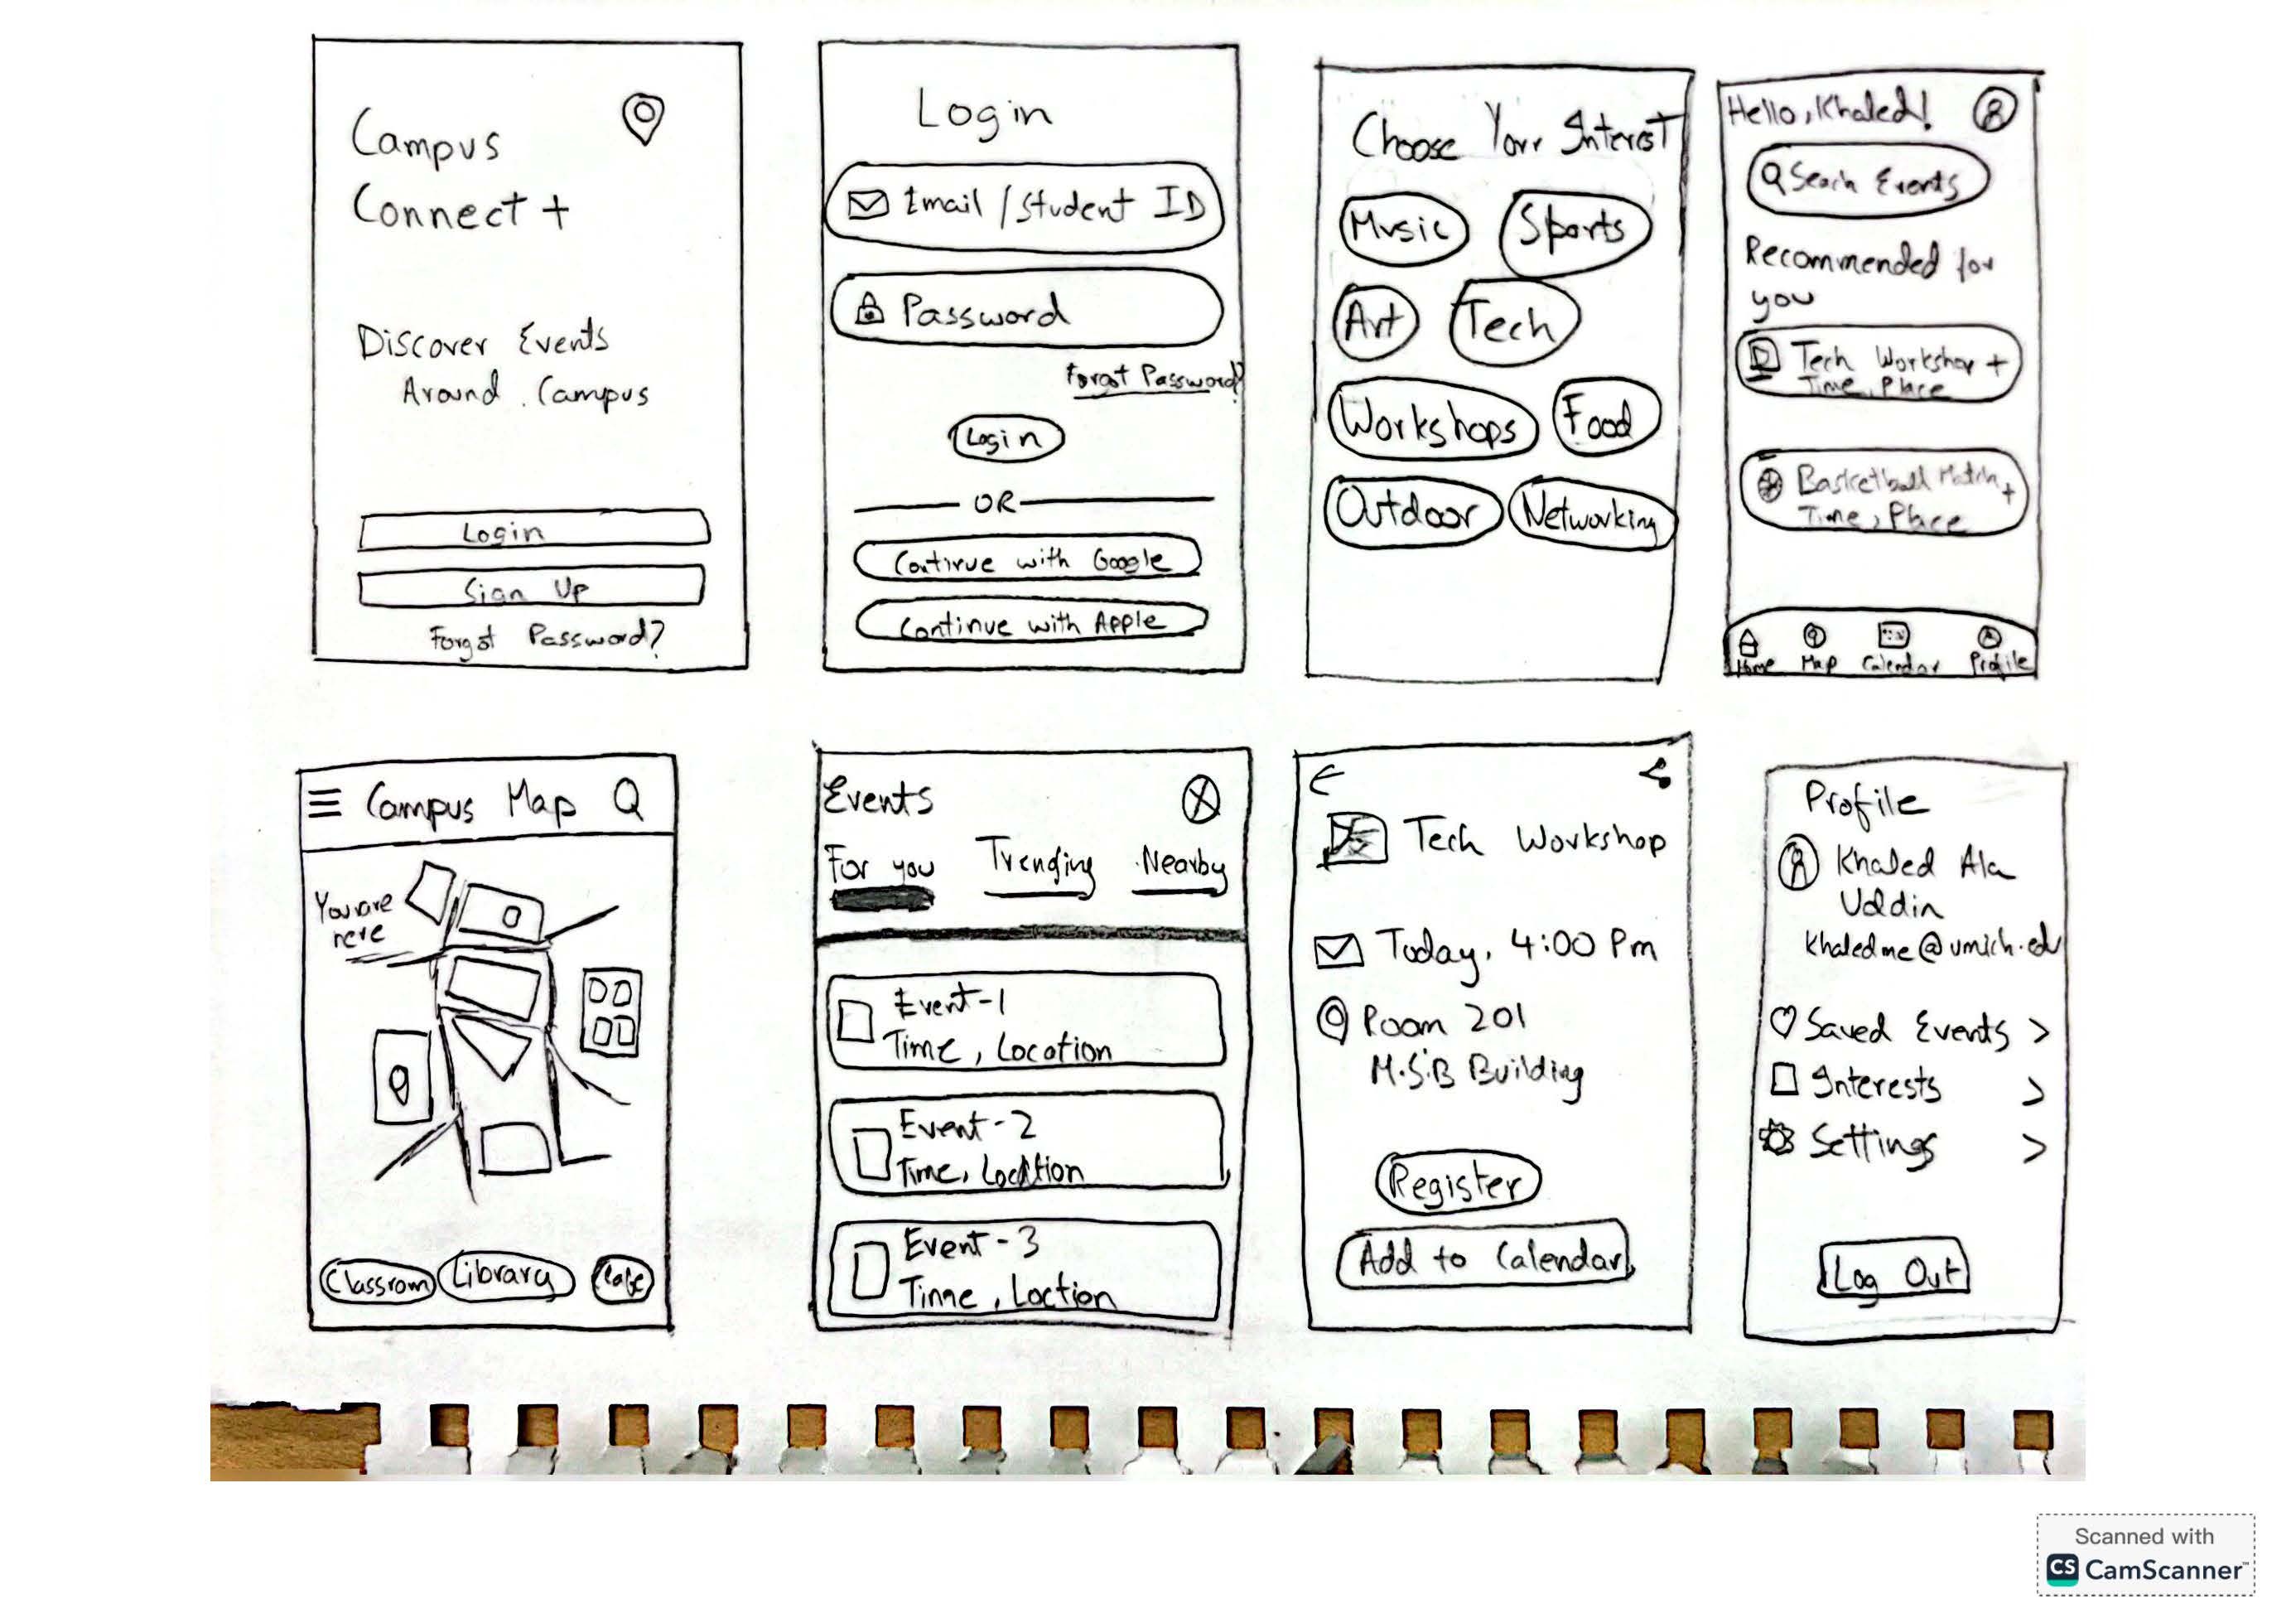 Campus
Connect +
Discover Events
Around Campus
Login
Sign Up
Forgot Password?
Login
Email / Student ID
Password
Forgot Password?
Login
OR
Continue with Google
Continue with Apple
Choose Your Interest
Music
Sports
Art
Tech
Workshops
Food
Outdoor
Networking
Hello, Khaled!
Search Events
Recommended for
you
Tech Workshop +
Time, Place
Basketball Match +
Time, Place
Home
Map
Calendar
Profile
Campus Map
You are
here
Classrom
Library
Cafe
Events
For you
Trending
Nearby
Event-1
Time, Location
Event-2
Time, Location
Event-3
Time, Loction
Tech Workshop
Today, 4:00 Pm
Room 201
M.S.B Building
Register
Add to Calendar
Profile
Khaled Ala
Uddin
khaledme@umich.edu
Saved Events >
Interests >
Settings >
Log Out
Scanned with
CS CamScanner™